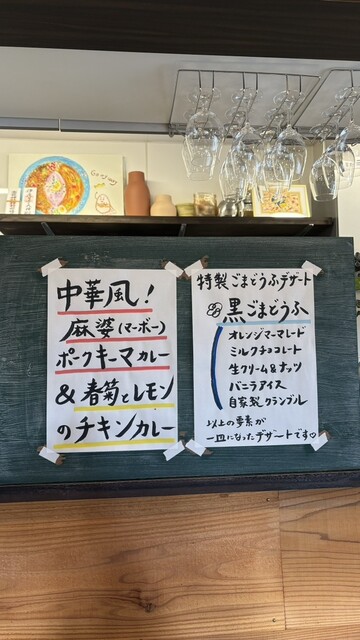 中華風!
麻婆(マーボー)
ポークキーマカレー
&春菊とレモン
のチキンカレー
特製ごまどうふデザート
黒ごまどうふ
オレンジマーマレード
ミルクチョコレート
生クリーム&ナッツ
バニラアイス
自家製クランブル
以上の要素が
一皿になったデザートです♡